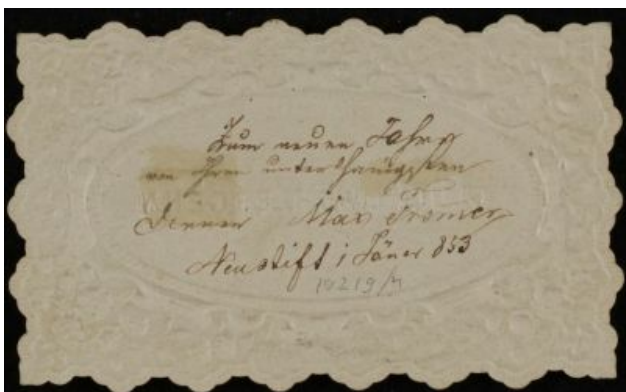 Zum neuen Jahre
von Ihrem unterthänigsten
Diener Max Tromer
Neustift 1 Jäner 853
14219/4